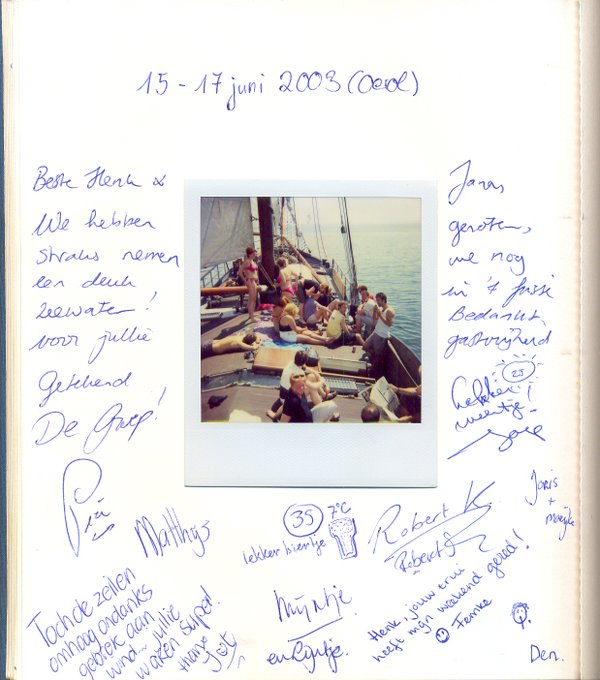 15 - 17 juni 2003 (Oerol)
Beste Henk & Jaras,
We hebben genoten,
straks nemen we nog
een deuk in 't
zeewater! Bedankt
voor jullie gastvrijheid
Getekend
De Groep!
25
lekker weertje!
Joep
Pia
Matthijs
35
7°C
lekker biertje
Robert K
Robert
Joris
+
Toch de zeilen
omhoog ondanks
gebrek aan
wind... jullie
waren super!
Mijntje
en Lijntje.
Henk, jouw trui
heeft mijn weekend gered!
Femke
Den.